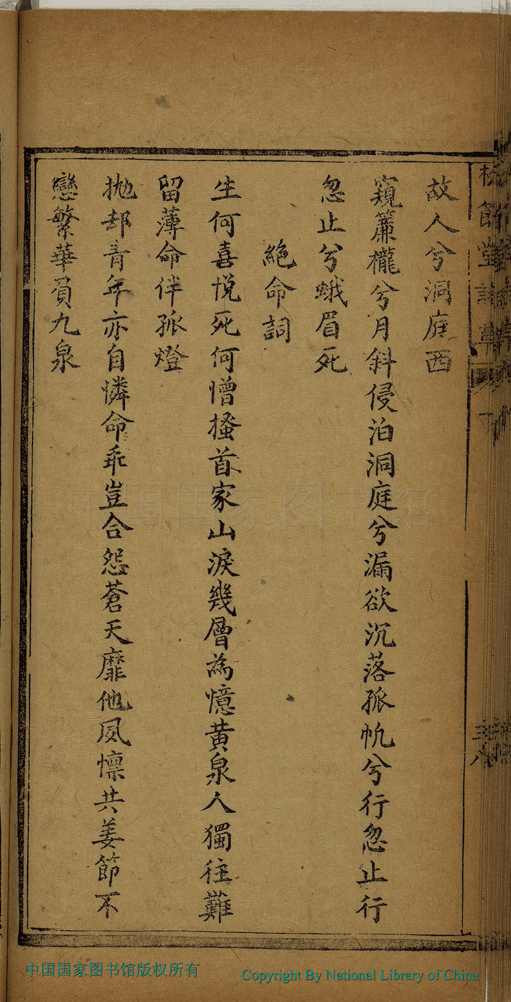 故人兮洞庭西
窺簾櫳兮月斜侵泊洞庭兮漏欲沉落孤帆兮行忽止行
忽止兮蛾眉死
絕命詞
生何喜悅死何憎搔首家山淚幾層為憶黃泉人獨往難
留薄命伴孤燈
拋却青年亦自憐命乖豈合怨蒼天靡他夙懍共姜節不
戀繁華負九泉
中国国家图书馆版权所有
Copyright By National Library of China